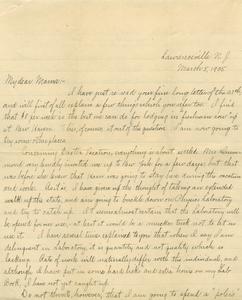 Lawrenceville N. J.
March 5, 1905
My dear Mama:-
I have just re-read your fine long letter of the
and will first of all explain a few things which you refer to. I find
that $ per week is the best we can do for lodging in "freshman row" up
at New Haven. This, of course, is out of the question. I am now going to
try some other place.
Concerning Easter Vacation, everything is about settled. Mrs.
very kindly invited me up to New York for a few days; but that
was before she knew that Dean was going to stay here during the vacation
and work. So I have given up the thought of taking an extended
walk up the state, and am going to buckle down on Physics laboratory
and try to catch up. It seems almost certain that the laboratory will
be opened for our use; at least it would be a
I have several times explained to you that when I say I am
delinquent in laboratory, it is quantity and not quality which is
lacking. Rate of work will naturally differ with the individuals, and
although I have put in some hard licks and extra hours on my Lab
Book, I have not yet caught up.
Do not think, however, that I am going to spend a